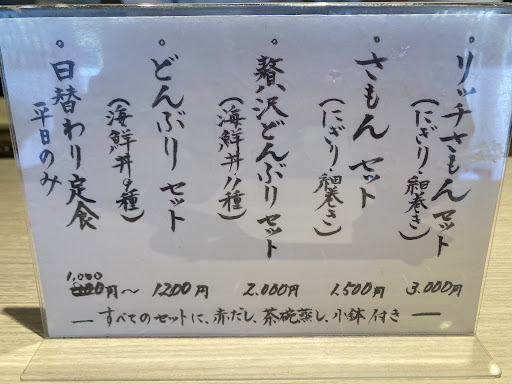 。リッチさもんセット
(にぎり・細巻き)
3.000円
。さもんセット
(にぎり・細巻き)
1.500円
。贅沢どんぶりセット
(海鮮丼11種)
2.000円
。どんぶりセット
(海鮮丼9種)
1200円
。日替わり定食
平日のみ
1,000
円〜
―すべてのセットに、赤だし、茶碗蒸し、小鉢付き―